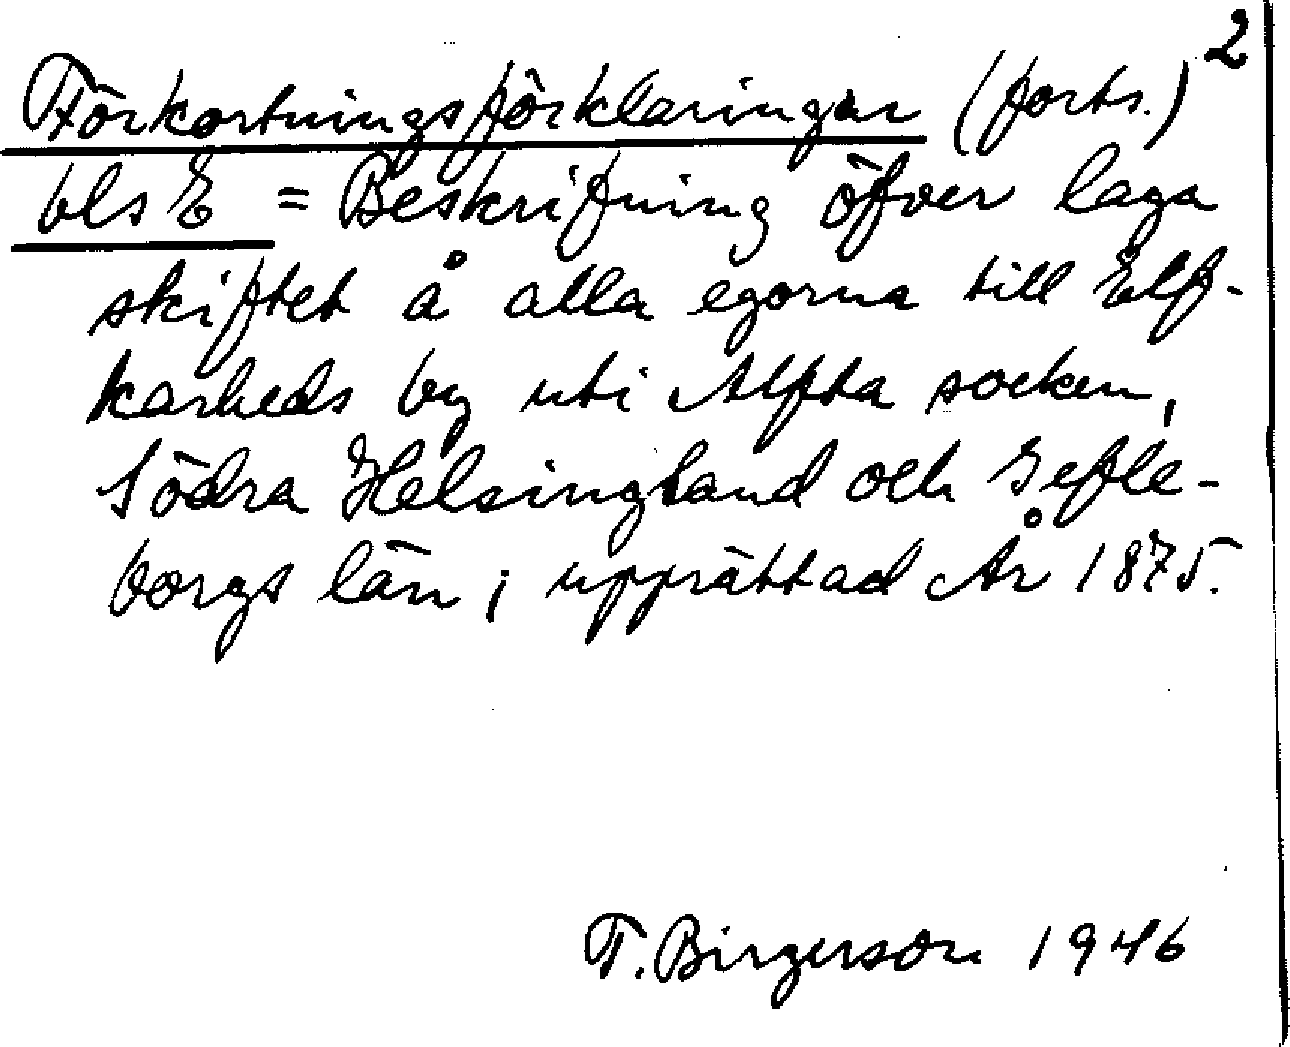 2
Förkortningsförklaringar (forts.)
bls E = Beskrifning öfver laga
skiftet å alla egorna till Elf-
karheds by uti Alfta socken,
Södra Helsingland och Gefle-
borgs län; upprättad År 1875.
T. Birgerson 1946